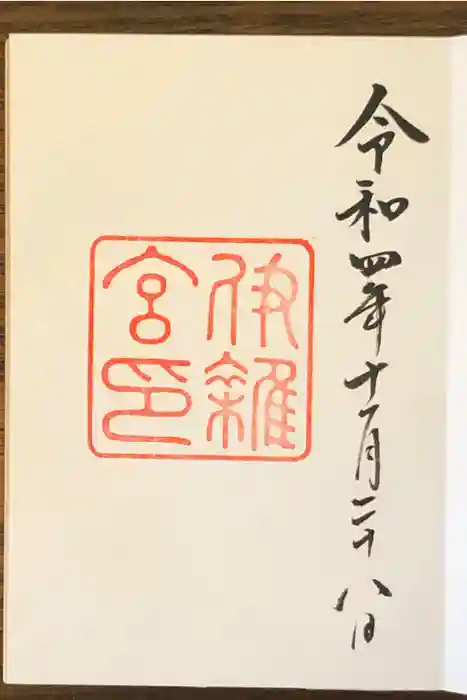 令和四年十一月二十八日
伊雜
宮印